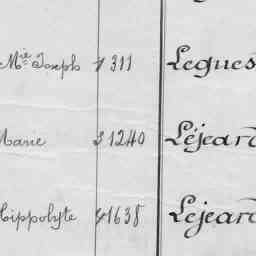 Mie Joseph 1 311 Legues
Marie 3 1240 Léjeard
Hippolyte 4 1638 Lejeard